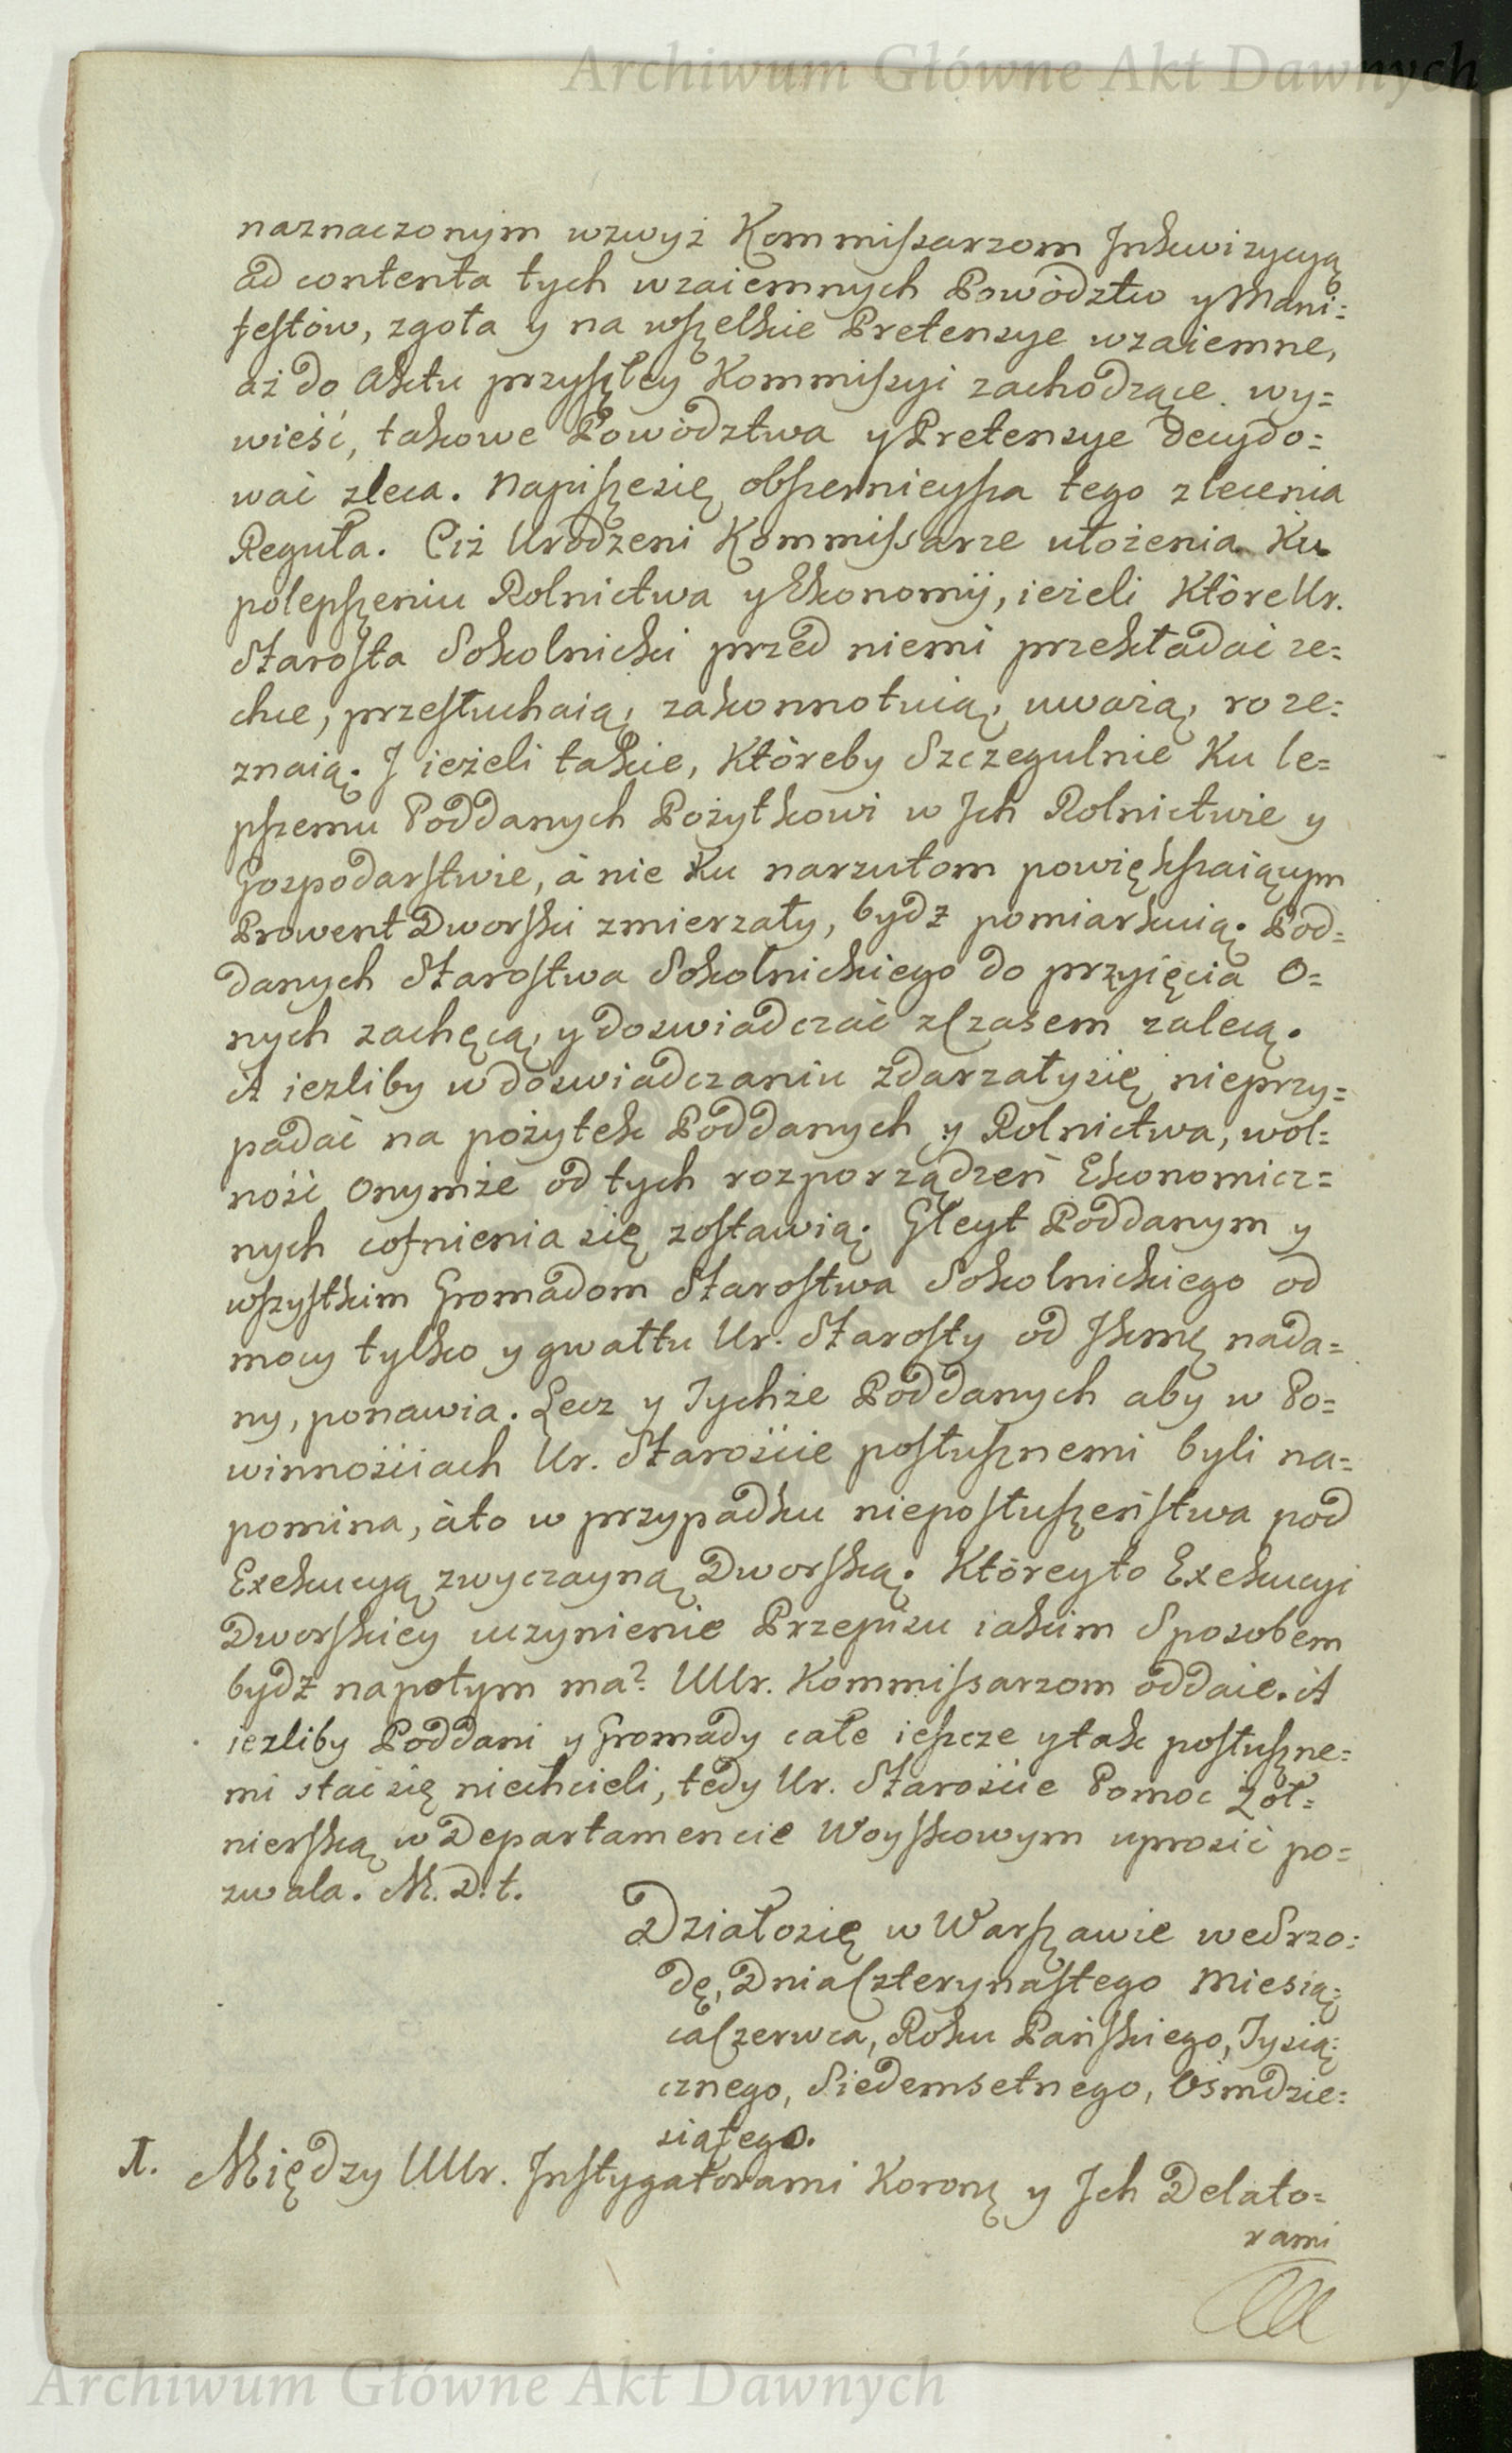 Archiwum Główne Akt Dawnych
naznaczonym wzwyż Kommissarzom Inkwizycyą
ad contenta tych wzaiemnych Powództw y Mani=
festów, zgoła y na wszelkie Pretensye wzaiemne,
aż do Aktu przyszłey Kommissyi zachodzące wy=
wieść, takowe Powództwa y Pretensye decydo=
wać zleca. Napisze się obszernieysza tego zlecenia
Reguła. Ciż Urodzeni Kommissarze ułożenia Ku
polepszeniu Rolnictwa y Ekonomij, ieżeli Które Ur.
Starosta Sokolnicki przed niemi przekładać ze=
chce, przesłuchaią, zakonnotuią, uważą, roze=
znaią. J ieżeli takie, Któreby Szczegulnie Ku le=
pszemu Poddanych Pożytkowi w Jch Rolnictwie y
Gospodarstwie, à nie Ku narzutom powiększaiącym
Prowent Dworski zmierzały, bydź pomiarkuią. Pod=
danych Starostwa Sokolnickiego do przyięcia O=
nych zachęcą, y doswiadczać z Czasem zalecą.
A iezliby w doswiadczaniu zdarzały się nieprzy=
padać na pożytek Poddanych y Rolnictwa, wol=
ność Onymże od tych rozporządzeń Ekonomicz=
nych cofnienia się zostawią. Gleyt Poddanym y
wszystkim Gromadom Starostwa Sokolnickiego od
mocy tylko y gwałtu Ur. Starosty od Jkmę nada=
ny, ponawia. Lecz y Tychże Poddanych aby w Po=
winnościach Ur. Starościie posłusznemi byli na=
pomina, àto w przypadku nieposłuszeństwa pod
Exekucyą zwyczayną Dworską. Któreyto Exekucyi
Dworskiey uczynienie Przepisu iakim Sposobem
bydź napotym ma? UUr. Kommissarzom oddaie. A
iezliby Poddani y Gromady całe ieszcze y tak posłuszne=
mi stać się niechcieli, tedy Ur. Starościie Pomoc Żoł=
nierską w Departamencie Woyskowym uprosić po=
zwala. M. D. t.
Działo się w Warszawie we Srzo=
dę, Dnia Czterynastego Miesią=
ca Czerwca, Roku Pańskiego, Tysią=
cznego, Siedemsetnego, Ośmdzie=
siątego.
1. Między UUr. Instygatorami Koronę y Jch Delato=
rami
Archiwum Główne Akt Dawnych